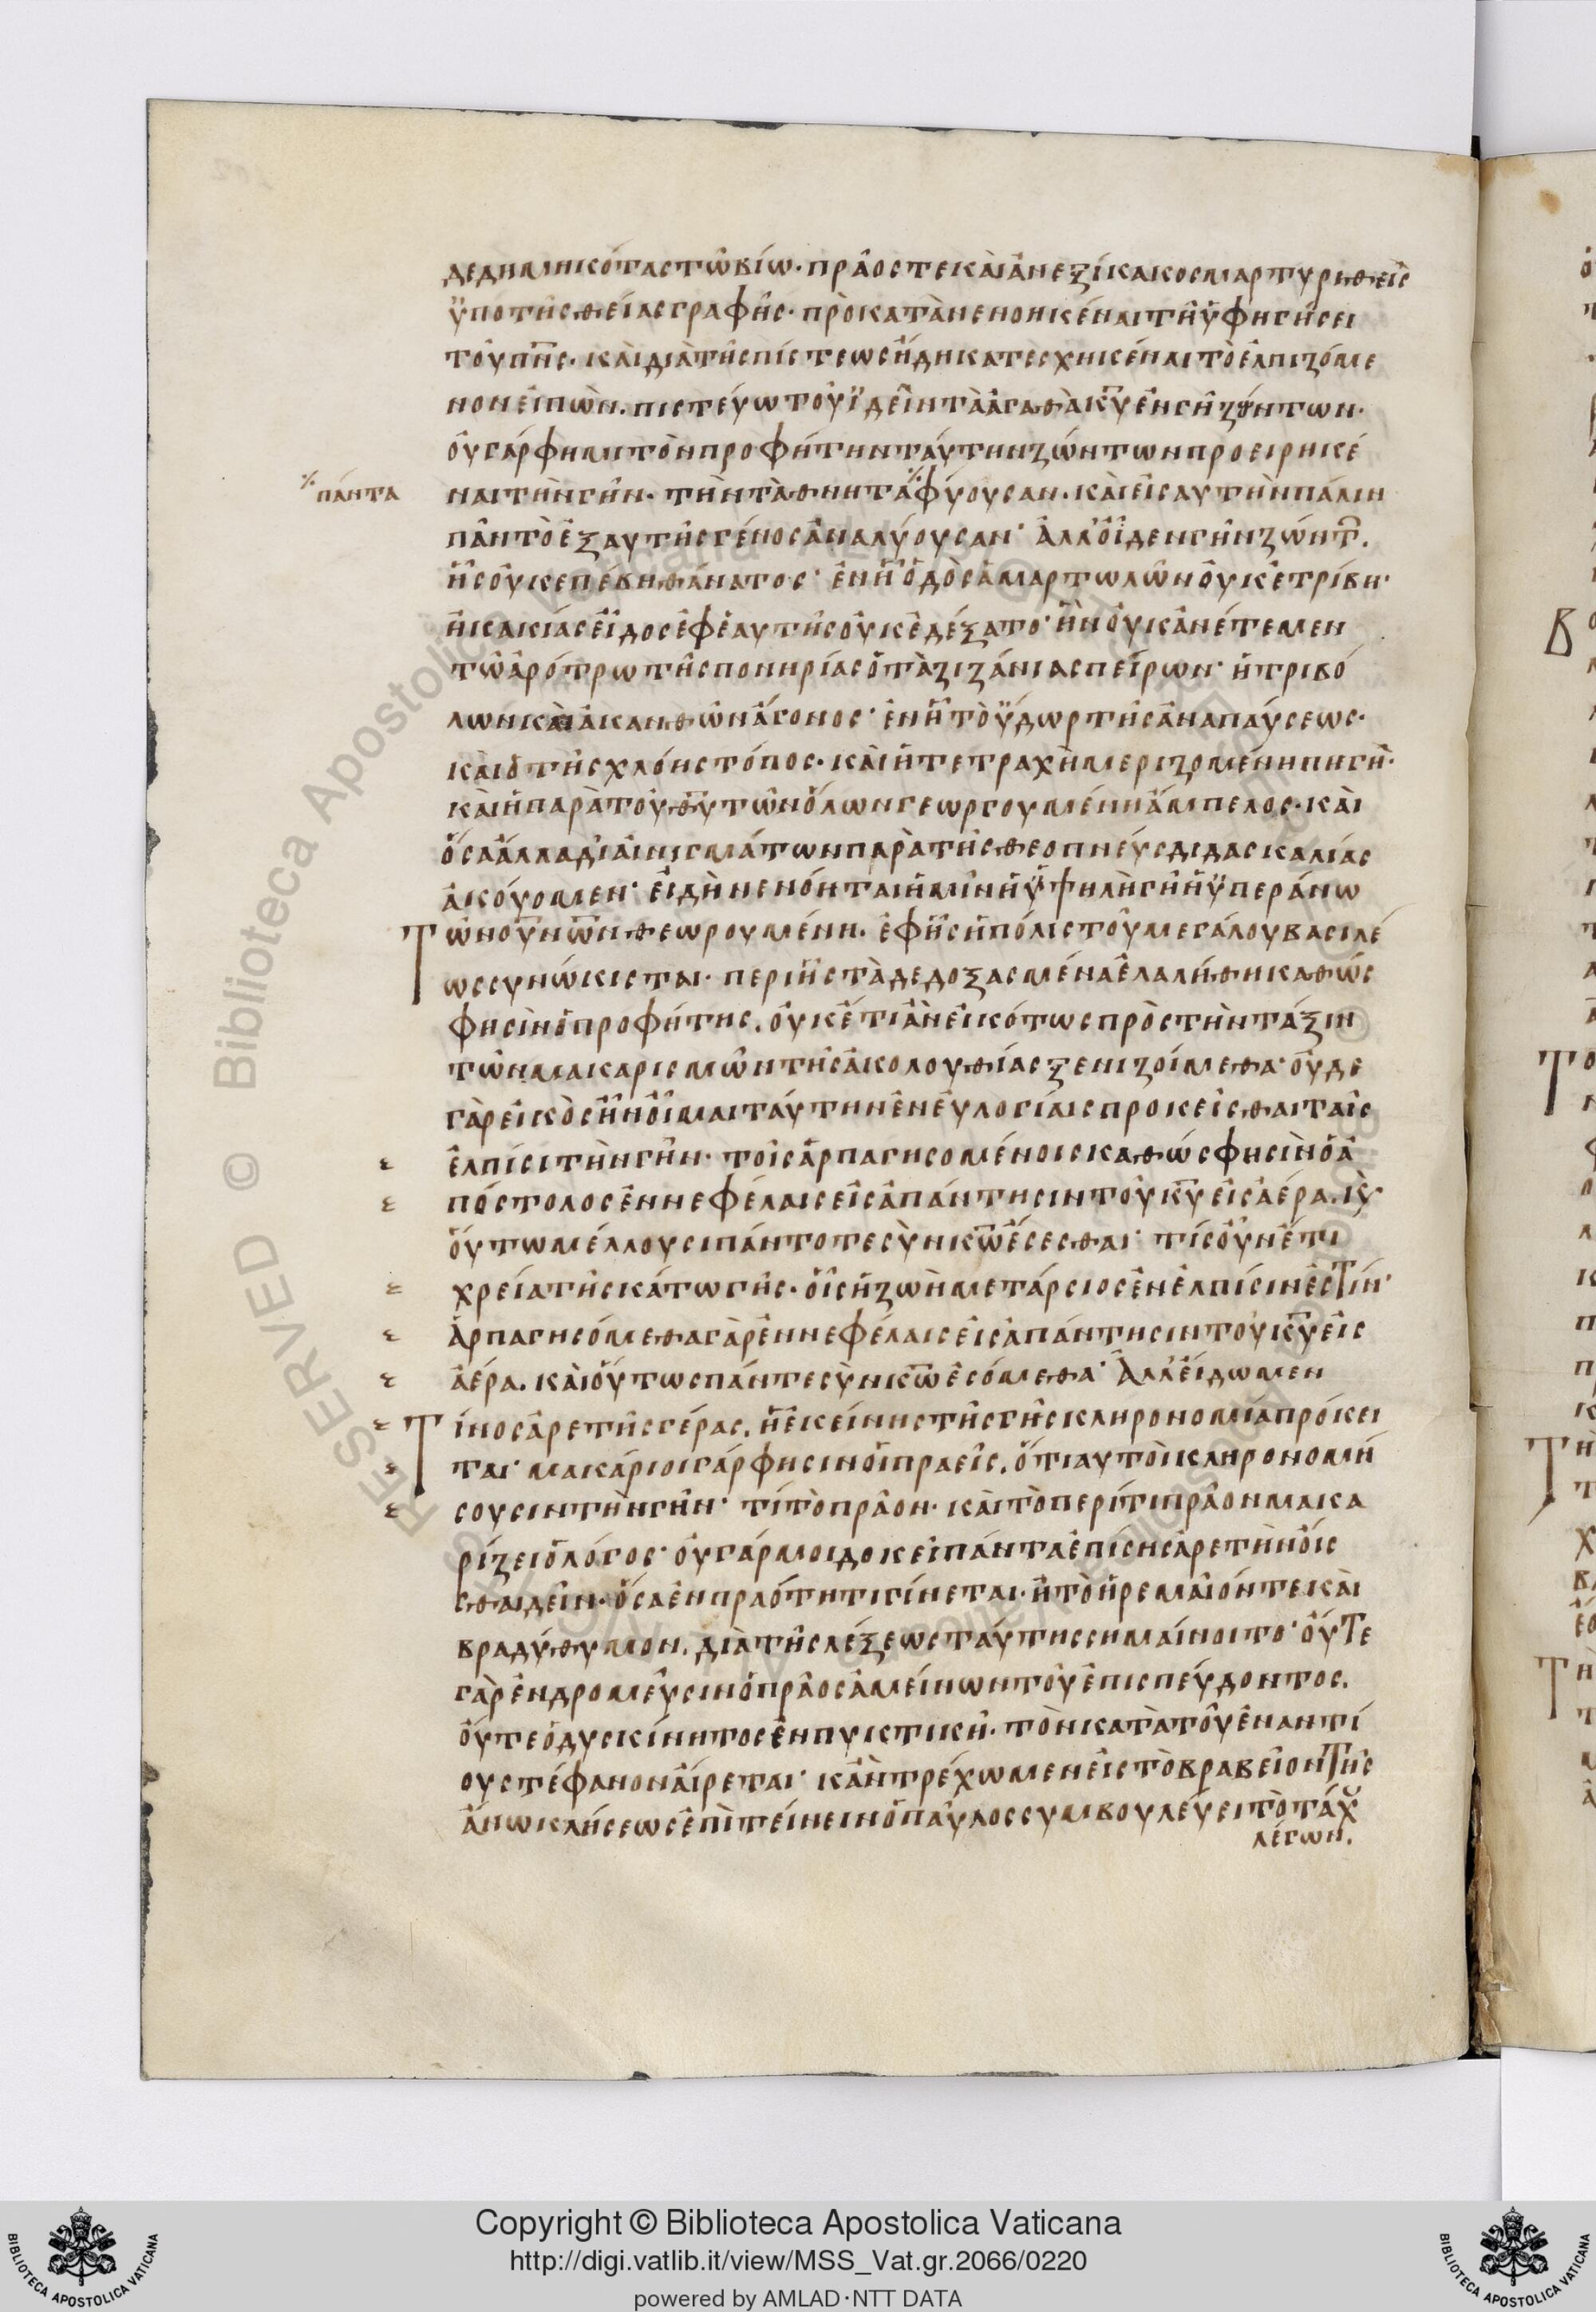 δεδημηκότας τῶ βίω· πρᾶος τε καὶ ἀνεξίκακος μαρτυρηθεὶς
ὑπο τῆς θείας γραφῆς· πρὸ κατὰνενοηκέναι τῆ ὑφηγήσει
τοῦ π̅ν̅ς· καὶ διὰ τῆς πίστεως ἤδη κατεσχηκέναι τὸ ἐλπιζόμε
νον εἰπὼν. πιστεύω τοῦ ἰδεῖν τὰ ἀγαθὰ κ̅υ̅ ἐν γῆ ζώντων·
οὐ γάρ φημι τὸν προφήτην ταύτην ζώντων προειρηκέ
ναι τὴν γῆν· τὴν τὰ θνητὰ ⁒ φύουσαν· καὶ εἰς αυτὴν πάλιν
⁒ πάντα
πᾶν τὸ ἐξ αυτῆς γένος ἀναλύουσαν· ἀλλ' οἶδεν γῆν ζώντ̅.
ἧς οὐκ επέβη θάνατος· ἐν ἧ ὁδὸς ἁμαρτωλῶν οὐκ ἐτρίβη·
ἣ κακίας εἶδος ἐφ' ἑαυτῆς οὐκ ἐδέξατο· ἣν οὐκ ἀνέτεμεν
τῶ ἀρότρω τῆς πονηρίας ὁ τὰ ζιζάνια σπείρων· ἡ τριβό
λων καὶ ἀκανθῶν ἄγονος· ἐν ἧ τὸ ὕδωρ τῆς ἀναπαύσεως·
καὶ ὁ τῆς χλόης τόπος· καὶ ἡ τετραχῆ μεριζομένη πηγὴ·
καὶ ἡ παρὰ τοῦ θ̅υ̅ τῶν ὅλων γεωργουμένη ἄμπελος· καὶ
ὅσα ἄλλα δι' αἰνιγμάτων παρὰ τῆς θεοπνεύς διδασκαλίας
ἀκούομεν· εἰ δὴ νενόηται ἡμῖν ἡ ὑψηλὴ γῆ ἡ ὑπεράνω
Τῶν ο̅υ̅ν̅ω̅ν̅ θεωρουμένη. ἐφ' ἧς ἡ πόλις τοῦ μεγάλου βασιλέ
ως συνώκισται· περι ἧς τὰ δεδοξασμένα ἐλαλήθη καθώς
φησὶν ὁ προφήτης. οὐκέτι ἂν εἰκότως πρὸς τὴν τάξιν
τῶν μακαρισμῶν τῆς ἀκολουθίας ξενιζοίμεθα· οὐδε
γὰρ εἰκὸς ἦν οἶμαι ταύτην ἐν εὐλογίαις προκεῖσθαι ταῖς
ἐλπίσι τὴν γῆν· τοῖς ἁρπαγησομένοις καθώς φησὶν ὁ ἀ
πόστολος ἐν νεφέλαις εἰς ἀπάντησιν τοῦ κ̅υ̅ εἰς ἀέρα. κ̀
οὕτω μέλλουσι πάντοτε σὺν κ̅ω̅ ἔσεσθαι· τίς οὖν ἔτι
χρεία τῆς κάτω γῆς· οἷς ἡ ζωὴ μετάρσιος ἐν ἐλπίσιν ἐστίν·
ἁρπαγησόμεθα γὰρ ἐν νεφέλαις εἰς ἀπάντησιν τοῦ κ̅υ̅ εἰς
ἀέρα. καὶ οὕτως πάντε σὺν κ̅ω̅ ἐσόμεθα· Ἀλλ' εἴδωμεν
Τίνος ἀρετῆς γέρας. ἡ ἐκείνης τῆς γῆς κληρονομία πρόκει
ται· μακάριοι γάρ φησιν οἱ πραεῖς. ὅτι αυτοὶ κληρονομή
σουσιν τὴν γῆν· τί τὸ πρᾶον· καὶ τὸ περίτι πρᾶον μακα
ρίζει ὁ λόγος· οὐ γάρ μοι δοκεῖ πάντα ἐπίσης ἀρετὴν οἴε
σθαι δεῖν· ὅσα ἐν πραότητι γίνεται· ἢ τὸ ἠρεμαῖόν τε καὶ
βραδύθυμον. διὰ τῆς λέξεως ταύτης σημαίνοιτο· οὔτε
γὰρ ἐν δρομεῦσιν ὁ πρᾶος ἀμείνων τοῦ ἐπισπεύδοντος.
οὔτε ὁ δυσκίνητος ἐν πυκτικῆ· τὸν κατὰ τοῦ ἐναντί
ου στέφανον αἴρεται· κἂν τρέχωμεν εἰς τὸ βραβεῖον τῆς
ἄνω κλήσεως ἐπὶτείνειν ὁ παῦλος συμβουλεύει τὸ τάχ̆
λέγων.